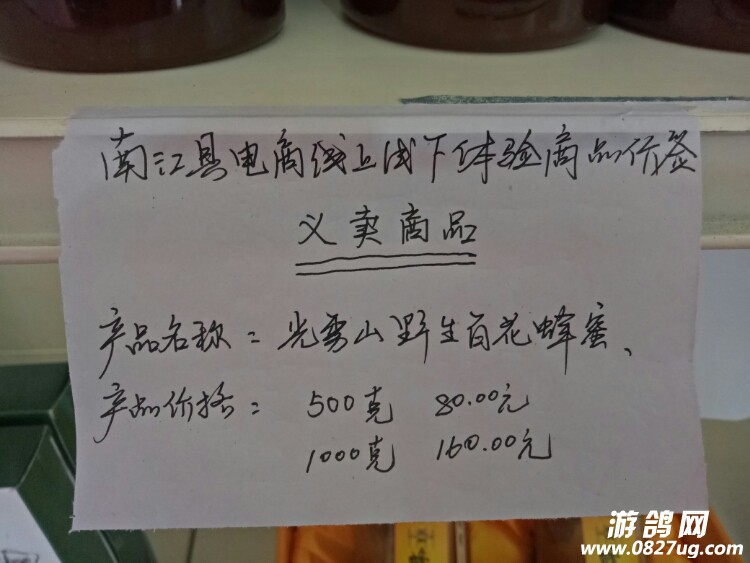 南江县电商线上线下体验商品价签
义卖商品
产品名称：光雾山野生百花蜂蜜、
产品价格：500克 80.00元
1000克 160.00元
游鸽网
www.0827ug.com